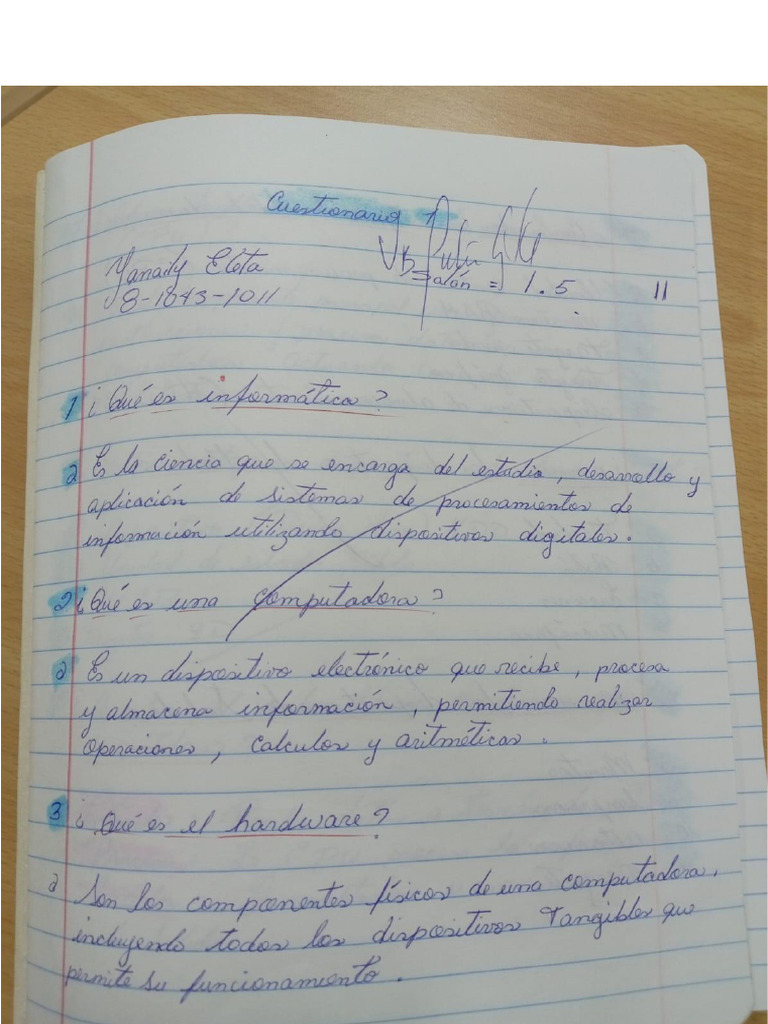 Cuestionario
Yanaily Eleta
Salón = 1.5
11
8-1043-1011
1 ¿Qué es informática?
a Es la ciencia que se encarga del estudio, desarrollo y
aplicación de sistemas de procesamientos de
información utilizando dispositivos digitales.
2 ¿Qué es una computadora?
a Es un dispositivo electrónico que recibe, procesa
y almacena información, permitiendo realizar
operaciones, calculos y aritméticas.
3 ¿Qué es el hardware?
a Son los componentes físicos de una computadora,
incluyendo todos los dispositivos Tangibles que
permite su funcionamiento.